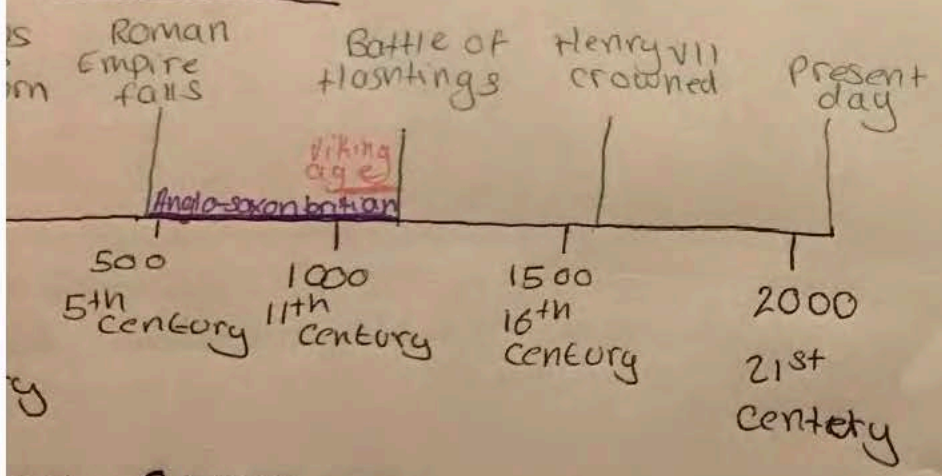 Roman
Empire
falls
Battle of
Hasntings
Henry VII
crowned
present
day
Viking
age
Anglo-saxon britian
500
5th
century
1000
11th
century
1500
16th
century
2000
21st
centety
y